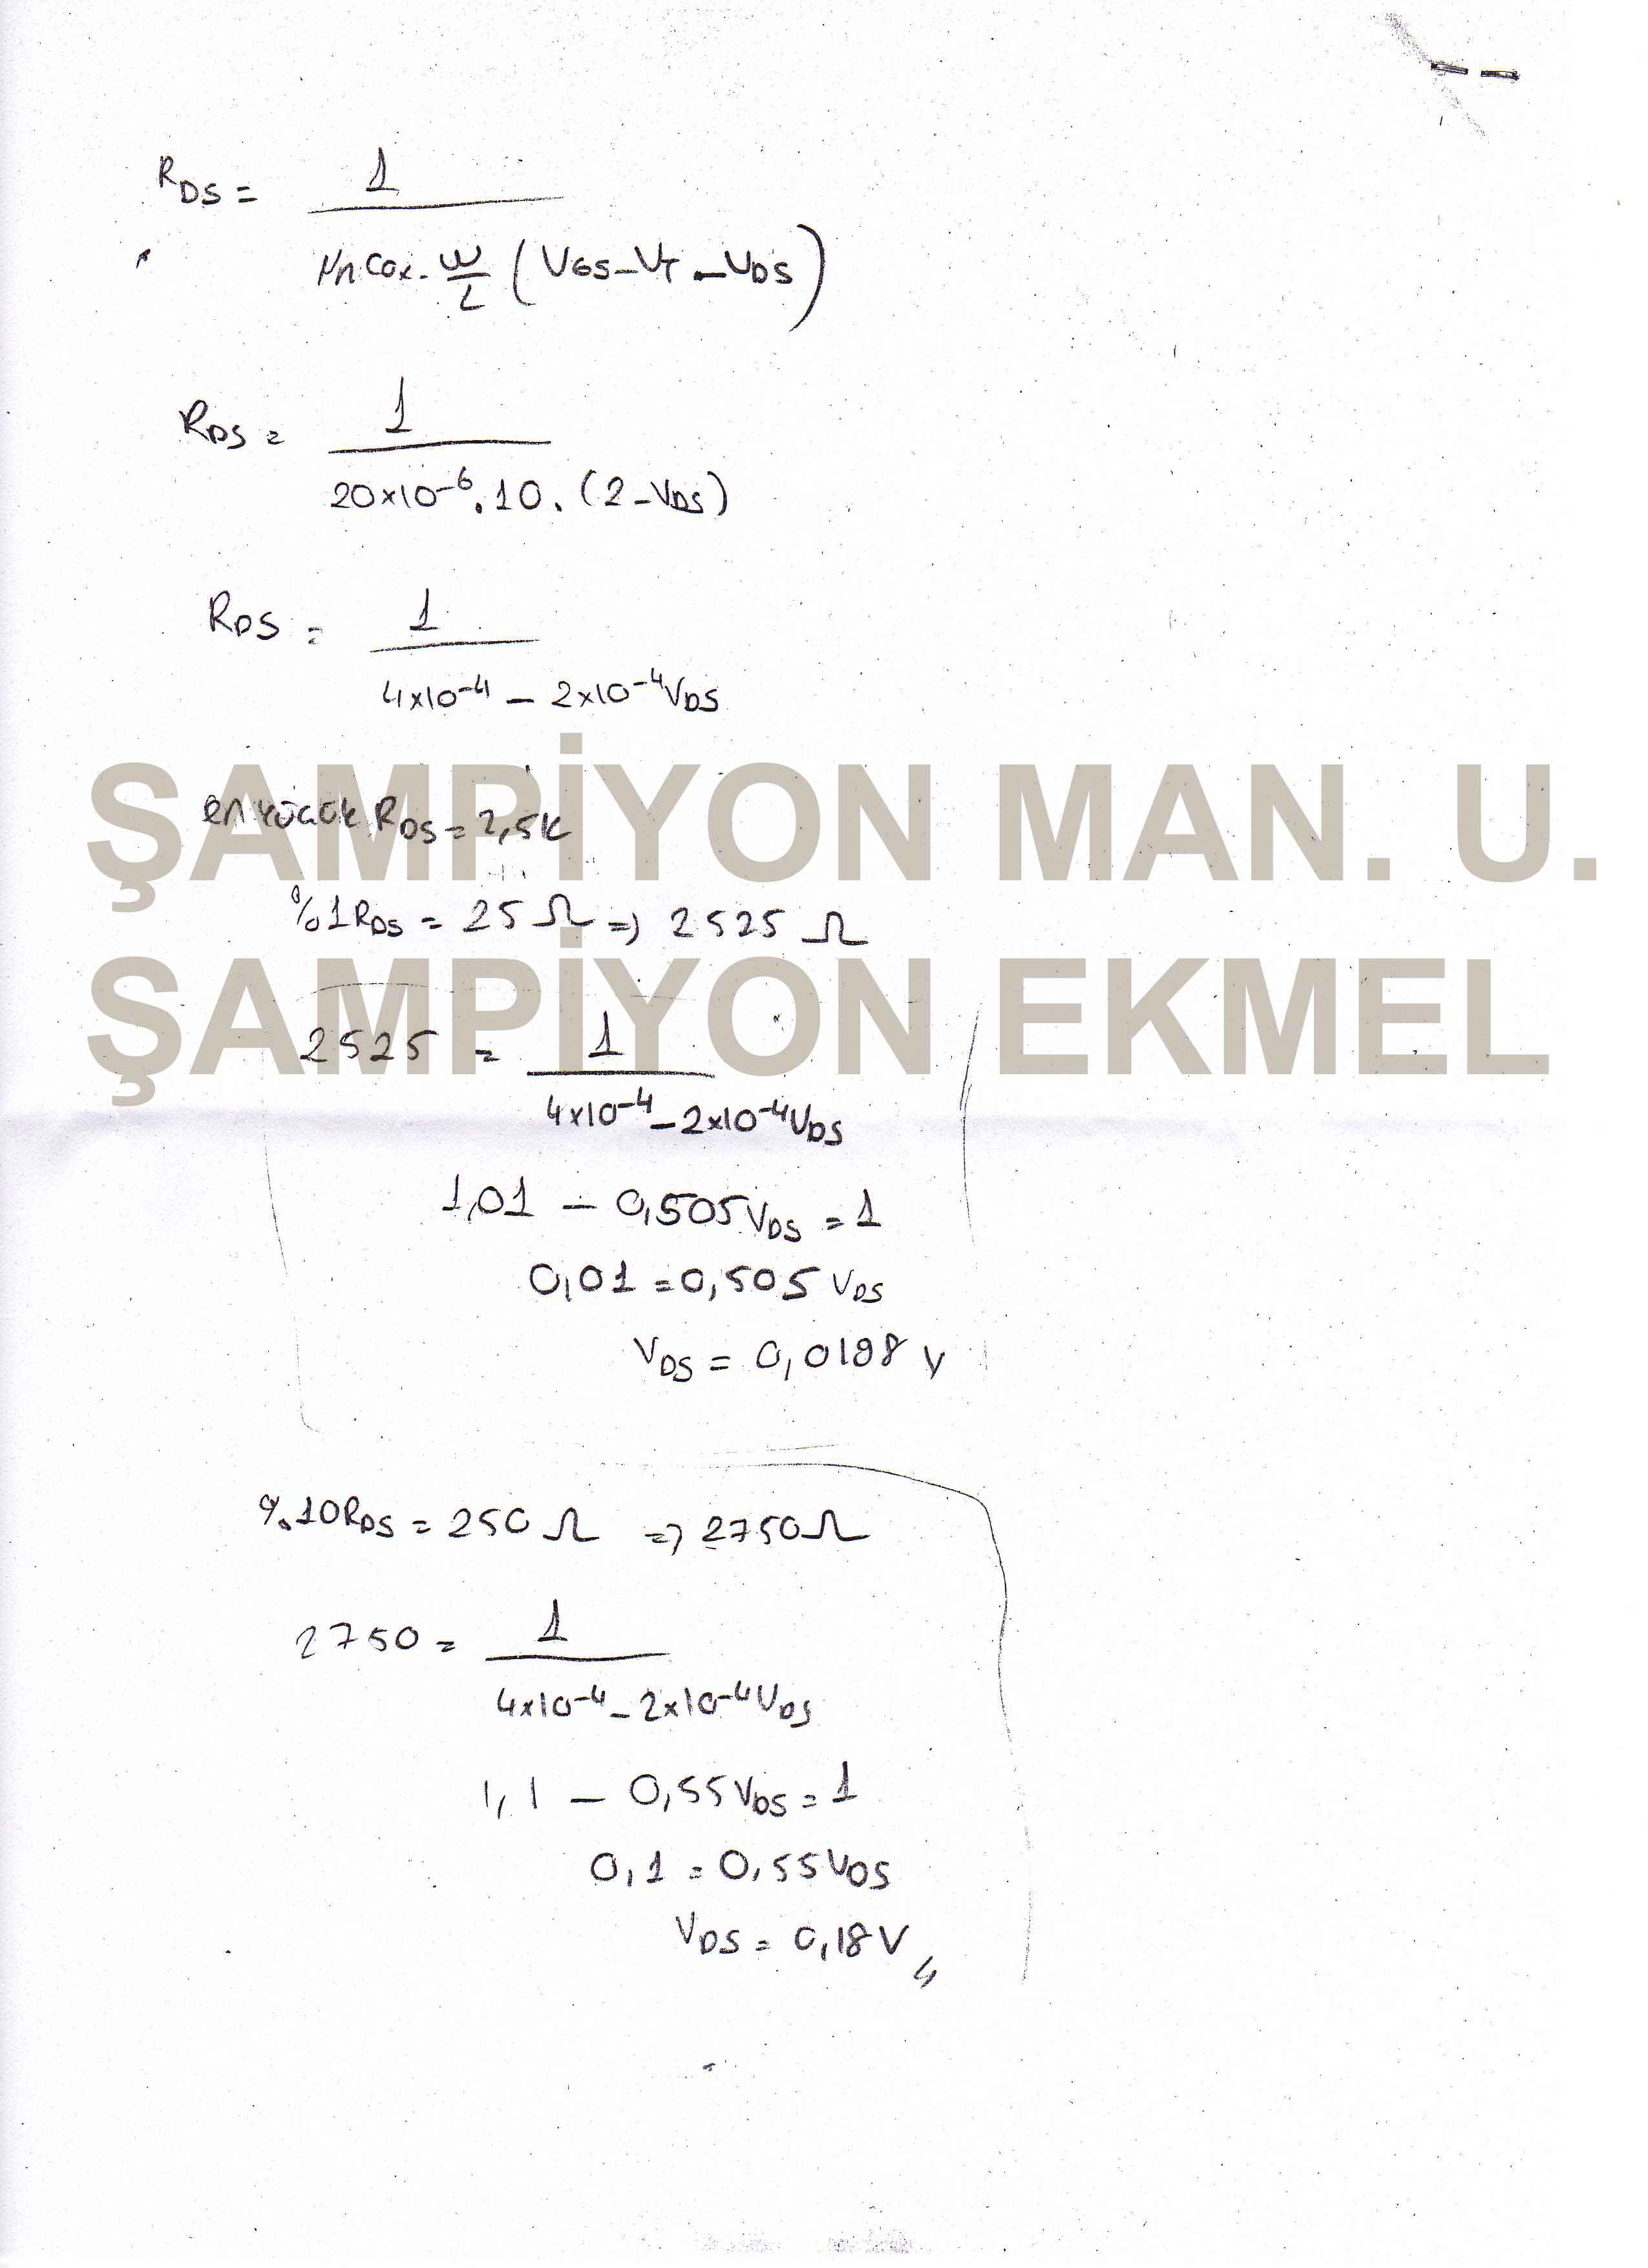 R_DS = 1 / (μn Cox . W/L (VGS - VT - VDS))
R_DS = 1 / (20x10^-6 . 10 . (2 - VDS))
R_DS = 1 / (4x10^-4 - 2x10^-4 VDS)
ŞAMPİYON MAN. U.
en küçük R_DS = 2,5k
%1 R_DS = 25 Ω => 2525 Ω
ŞAMPİYON EKMEL
2525 = 1 / (4x10^-4 - 2x10^-4 VDS)
1,01 - 0,505 VDS = 1
0,01 = 0,505 VDS
VDS = 0,0198 V
%10 R_DS = 250 Ω => 2750 Ω
2750 = 1 / (4x10^-4 - 2x10^-4 VDS)
1,1 - 0,55 VDS = 1
0,1 = 0,55 VDS
VDS = 0,18 V